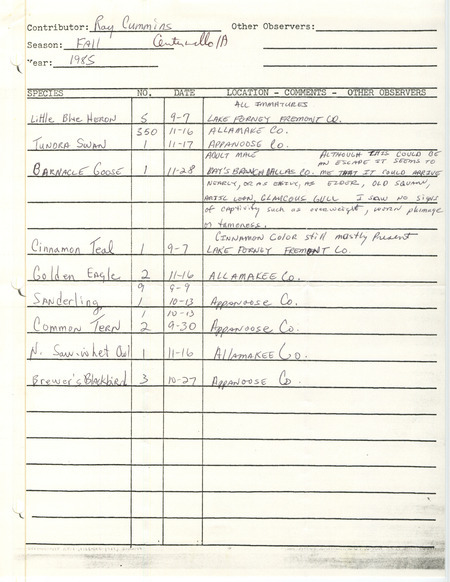 Contributor: Ray Cummins Other Observers:
Season: FALL Centerville IA
Year: 1985
SPECIES NO. DATE LOCATION - COMMENTS - OTHER OBSERVERS
ALL IMMATURES
Little Blue HERON 5 9-7 LAKE FORNEY FREMONT CO.
350 11-16 ALLAMAKE CO.
TUNDRA SWAN 1 11-17 APPANOOSE Co.
ADULT MALE ALTHOUGH THIS COULD BE
AN ESCAPE IT SEEMS TO
BARNACLE GOOSE 1 11-28 DAY'S BRANCH DALLAS CO. ME THAT IT COULD ARRIVE
NEARLY, OR AS EASILY, AS EIDER, OLD SQUAW,
LOON, GLAUCOUS GULL I SAW NO signs
of captivity such as overweight, worn plumage
or tameness.
CINNAMON COLOR still mostly Present
Cinnamon Teal 1 9-7 LAKE FORNEY FREMONT Co.
Golden Eagle 2 11-16 ALLAMAKEE Co.
9 9-9
Sanderling 1 10-13 Appanoose Co.
1 10-13
Common Tern 2 9-30 Appanoose Co.
N. Saw-whet Owl 1 11-16 ALLAMAKEE Co.
Brewer's Blackbird 3 10-27 APPANOOSE CO